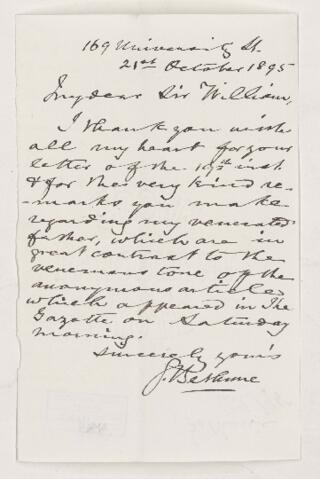 169 University St.
21st October 1895
My dear Sir William,
I thank you with
all my heart for your
letter of the 19th inst
& for the very kind re-
-marks you make
regarding my venerated
father, which are in
great contrast to the
venemous tone of the
anonymous article
which appeared in The
Gazette on Saturday
morning.
Sincerely yours
J. Bethune